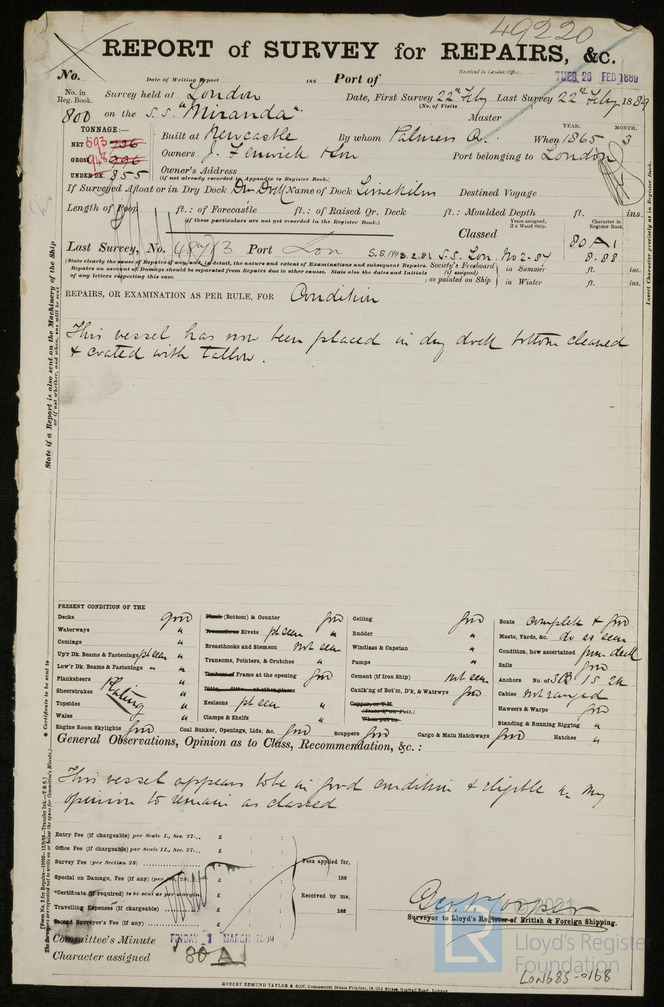 49220
REPORT of SURVEY for REPAIRS, &c.
No. Date of Writing Report 188 Port of Received in London Office, TUES. 26 FEB 1889
No. in Reg. Book. Survey held at London Date, First Survey 22nd Feby Last Survey 22nd Feby 1889
(No. of Visits
800 on the S.S. "Miranda" Master
TONNAGE:— Built at Newcastle By whom Palmers Co. When 1865 YEAR. MONTH. 3
NET 593
GROSS 948 Owners J. Fenwick & Son Port belonging to London
UNDER DK. 855 Owner's Address
(if not already recorded in Appendix to Register Book.)
If Surveyed Afloat or in Dry Dock Dry Dock Name of Dock Limekilns Destined Voyage
Length of Poop ft.: of Forecastle ft.: of Raised Qr. Deck ft.: Moulded Depth ft. ins.
(if these particulars are not not recorded in the Register Book.)
Years assigned, if a Wood Ship. Character in Register Book.
Classed 80 A 1
Last Survey, No. Port Lon S.S. Lon. No 2-84 8.88
(State clearly the cause of Repairs if any, and in detail, the nature and extent of Examinations and subsequent Repairs.
Repairs on account of Damage should be separated from Repairs due to other causes. State also the dates and Initials
of any letters respecting this case.
Society's Freeboard (if assigned) as painted on Ship in Summer ft. ins.
in Winter ft. ins.
REPAIRS, OR EXAMINATION AS PER RULE, FOR Condition
This vessel has now been placed in dry dock bottom cleaned
& coated with tallow.
PRESENT CONDITION OF THE
Decks good
Waterways "
Comings "
Up'r Dk. Beams & Fastenings pt seen "
Low'r Dk. Beams & Fastenings " "
Planksheers "
Sheerstrakes Plating "
Topsides "
Wales "
Engine Room Skylights good
Plank (Bottom) & Counter good
Treenails or Rivets pt seen "
Breasthooks and Stemson not seen
Transoms, Pointers, & Crutches "
Timbers or Frame at the opening good
Ditto, ditto at other places
Keelsons pt seen "
Clamps & Shelfs "
Coal Bunker, Openings, Lids, &c. good
Ceiling good
Rudder "
Windlass & Capstan "
Pumps "
Cement (if Iron Ship) not seen
Caulk'g of Bot'm, D'k, & Watrwys good
Copper, or Y.M.
(State if on Felt.)
When put on
Scuppers good Cargo & Main Hatchways good Hatches "
Boats complete & good
Masts, Yards, &c. do as seen
Condition, how ascertained from deck
Sails good
Anchors No. of 3 B 1 S 2 K
Cables not ranged
Hawsers & Warps good
Standing & Running Rigging "
General Observations, Opinion as to Class, Recommendation, &c. :
This vessel appears to be in good condition & eligible in my
opinion to remain as classed
Entry Fee (if chargeable) per Scale I., Sec. 27... £ : :
Office Fee (if chargeable) per Scale II., Sec. 27... £ : :
Survey Fee (per Section 28) £ : : Fees applied for, 188
Special on Damage, Fee (if any) (per Sec. 28) £ : :
*Certificate (if required) to be sent as per margin £ : : Received by me,
Travelling Expenses (if chargeable) £ : : 188
Second Surveyor's Fee (if any) £ : :
Surveyor to Lloyd's Register of British & Foreign Shipping.
Committee's Minute FRIDAY 1 MARCH 1889
Character assigned 80 A 1
© 2021
LR
Lloyd's Register
Foundation
LON685-0168
ROBERT EDMUND TAYLOR & SON, Commercial Steam Printers, 19, Old Street, Goswell Road, London.
State if a Report is also sent on the Machinery of the Ship
or if not whether, and when, one will be sent.
* Certificate to be sent to
Insert Character precisely as in Register Book.